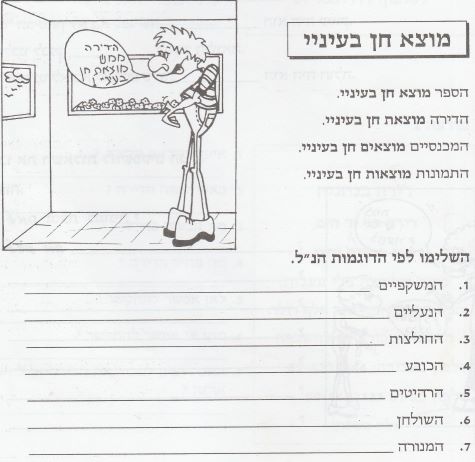 מוצא חן בעיניי
הדירה
ממש
מוצאת חן
בעיניי
הספר מוצא חן בעיניי.
הדירה מוצאת חן בעיניי.
המכנסיים מוצאים חן בעיניי.
התמונות מוצאות חן בעיניי.
השלימו לפי הדוגמות הנ"ל.
1. המשקפיים
2. הנעליים
3. החולצות
4. הכובע
5. הרהיטים
6. השולחן
7. המנורה